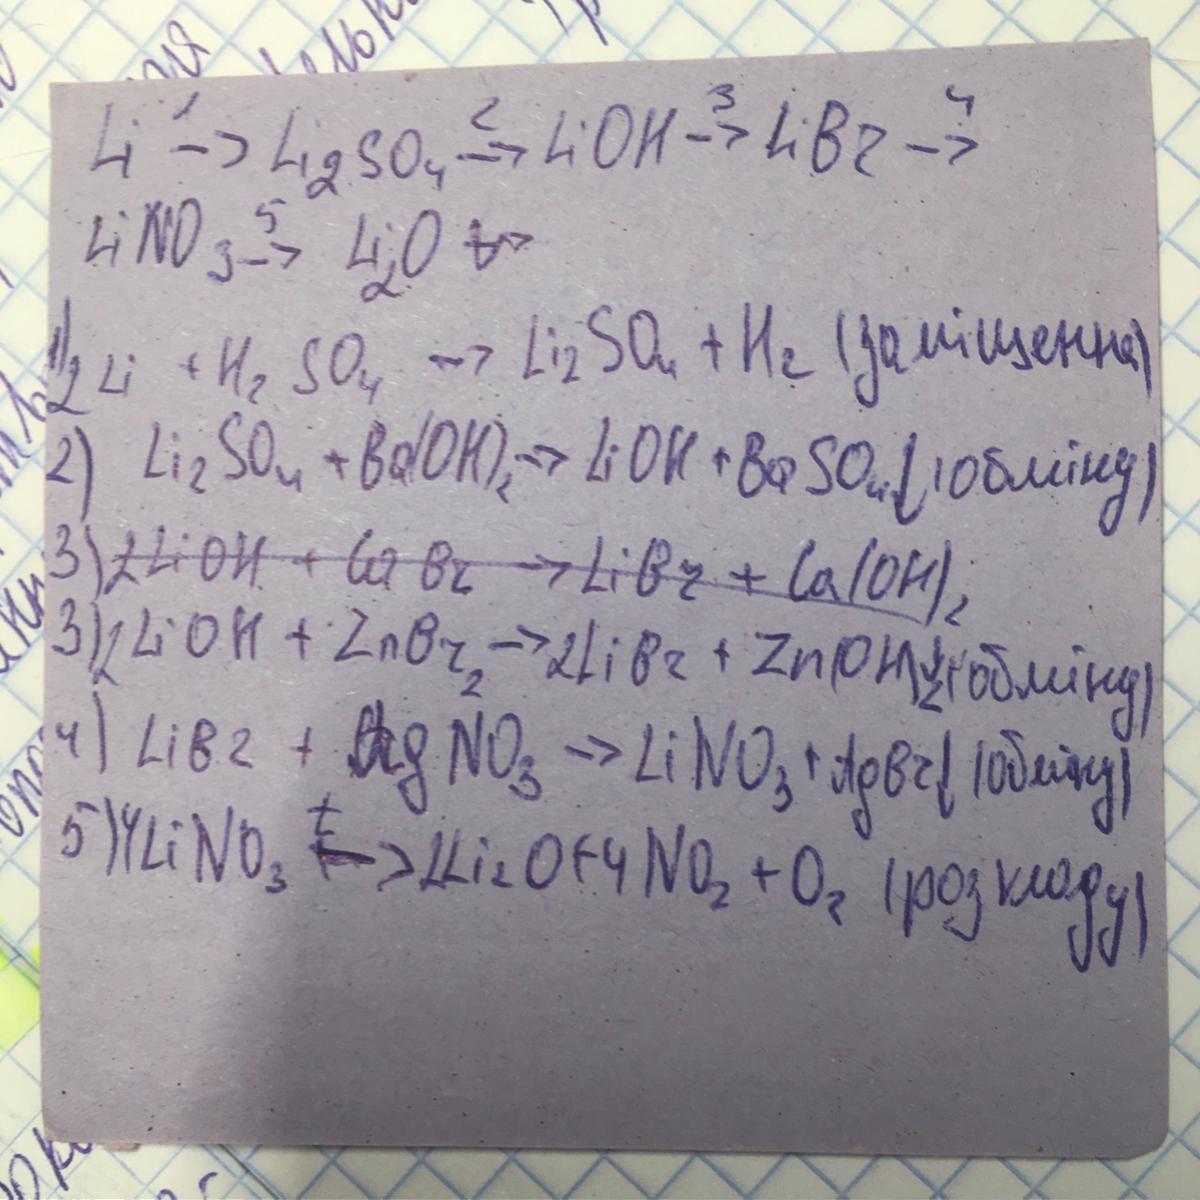 Li 1-> Li2SO4 2-> LiOH 3-> LiBr 4->
LiNO3 5-> Li2O
1) 2Li + H2SO4 -> Li2SO4 + H2 (заміщення)
2) Li2SO4 + Ba(OH)2 -> LiOH + BaSO4↓ (обміну)
3) 2LiOH + CaBr -> LiBr + Ca(OH)2
3) 2LiOH + ZnBr2 -> 2LiBr + Zn(OH)2↓ (обміну)
4) LiBr + AgNO3 -> LiNO3 + AgBr↓ (обміну)
5) 4LiNO3 t-> 2Li2O + 4NO2 + O2 (розкладу)